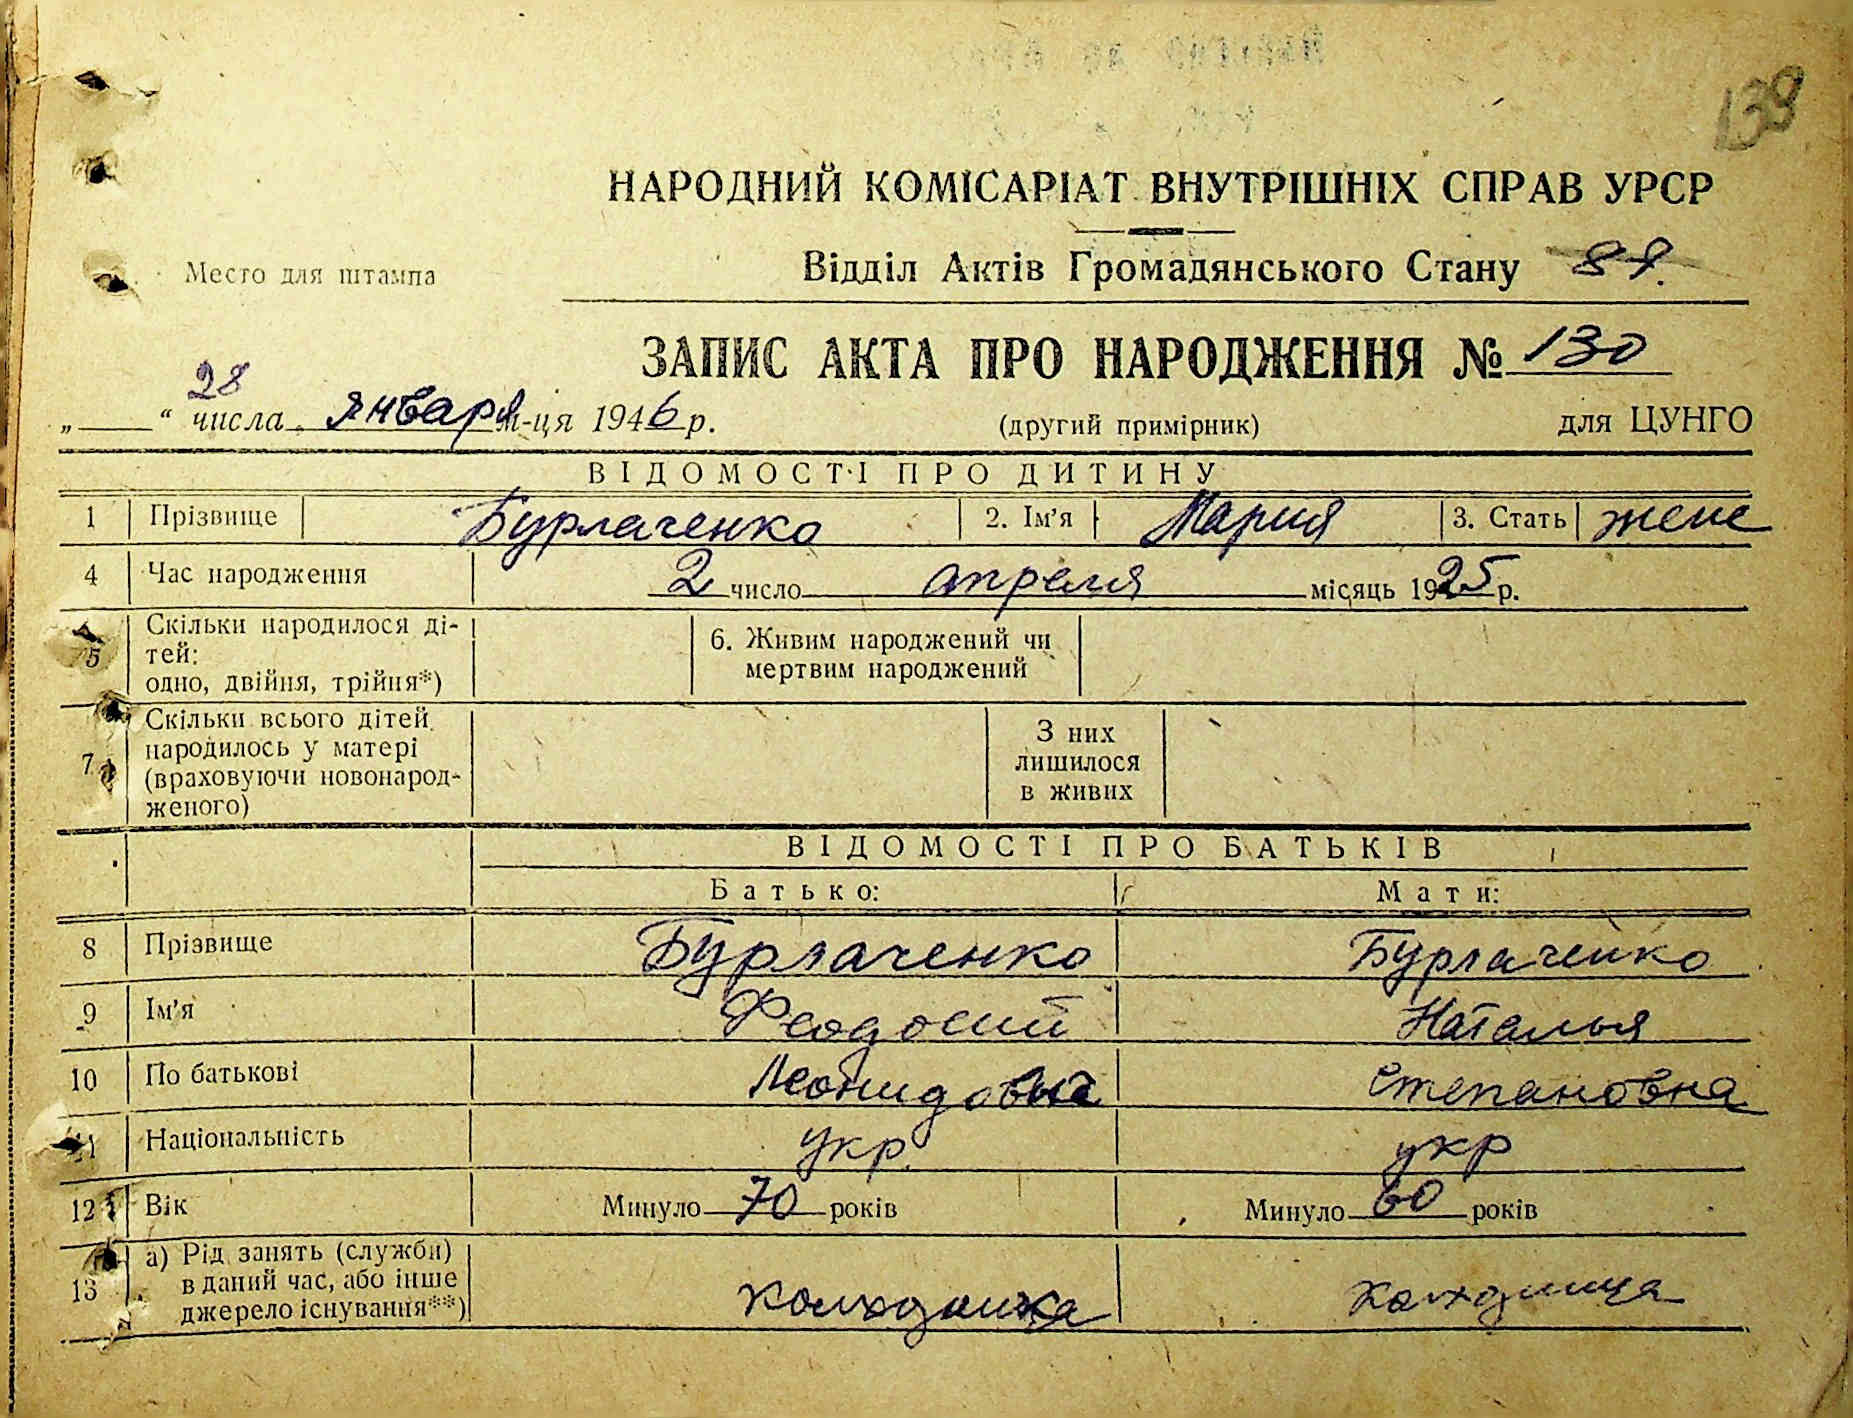 139
НАРОДНИЙ КОМІСАРІАТ ВНУТРІШНІХ СПРАВ УРСР
Место для штампа
Відділ Актів Громадянського Стану
ЗАПИС АКТА ПРО НАРОДЖЕННЯ № 130
28
„ “ числа января м-ця 1946 р. (другий примірник) для ЦУНГО
ВІДОМОСТІ ПРО ДИТИНУ
1 Прізвище Бурлаченко 2. Ім'я Мария 3. Стать женс
4 Час народження 2 число апреля місяць 1925 р.
5 Скільки народилося ді-
тей:
одно, двійня, трійня*)
6. Живим народжений чи
мертвим народжений
7 Скільки всього дітей
народилось у матері
(враховуючи новонарод-
женого)
З них
лишилося
в живих
ВІДОМОСТІ ПРО БАТЬКІВ
Батько: Мати:
8 Прізвище Бурлаченко Бурлаченко
9 Ім'я Феодосий Наталья
10 По батькові Леонидович Степановна
11 Національність укр. укр
12 Вік Минуло 70 років Минуло 60 років
13 а) Рід занять (служби)
в даний час, або інше
джерело існування**)
колхозница